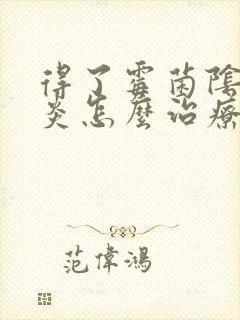 得了霉菌陰
炎怎麼治療
范偉鴻